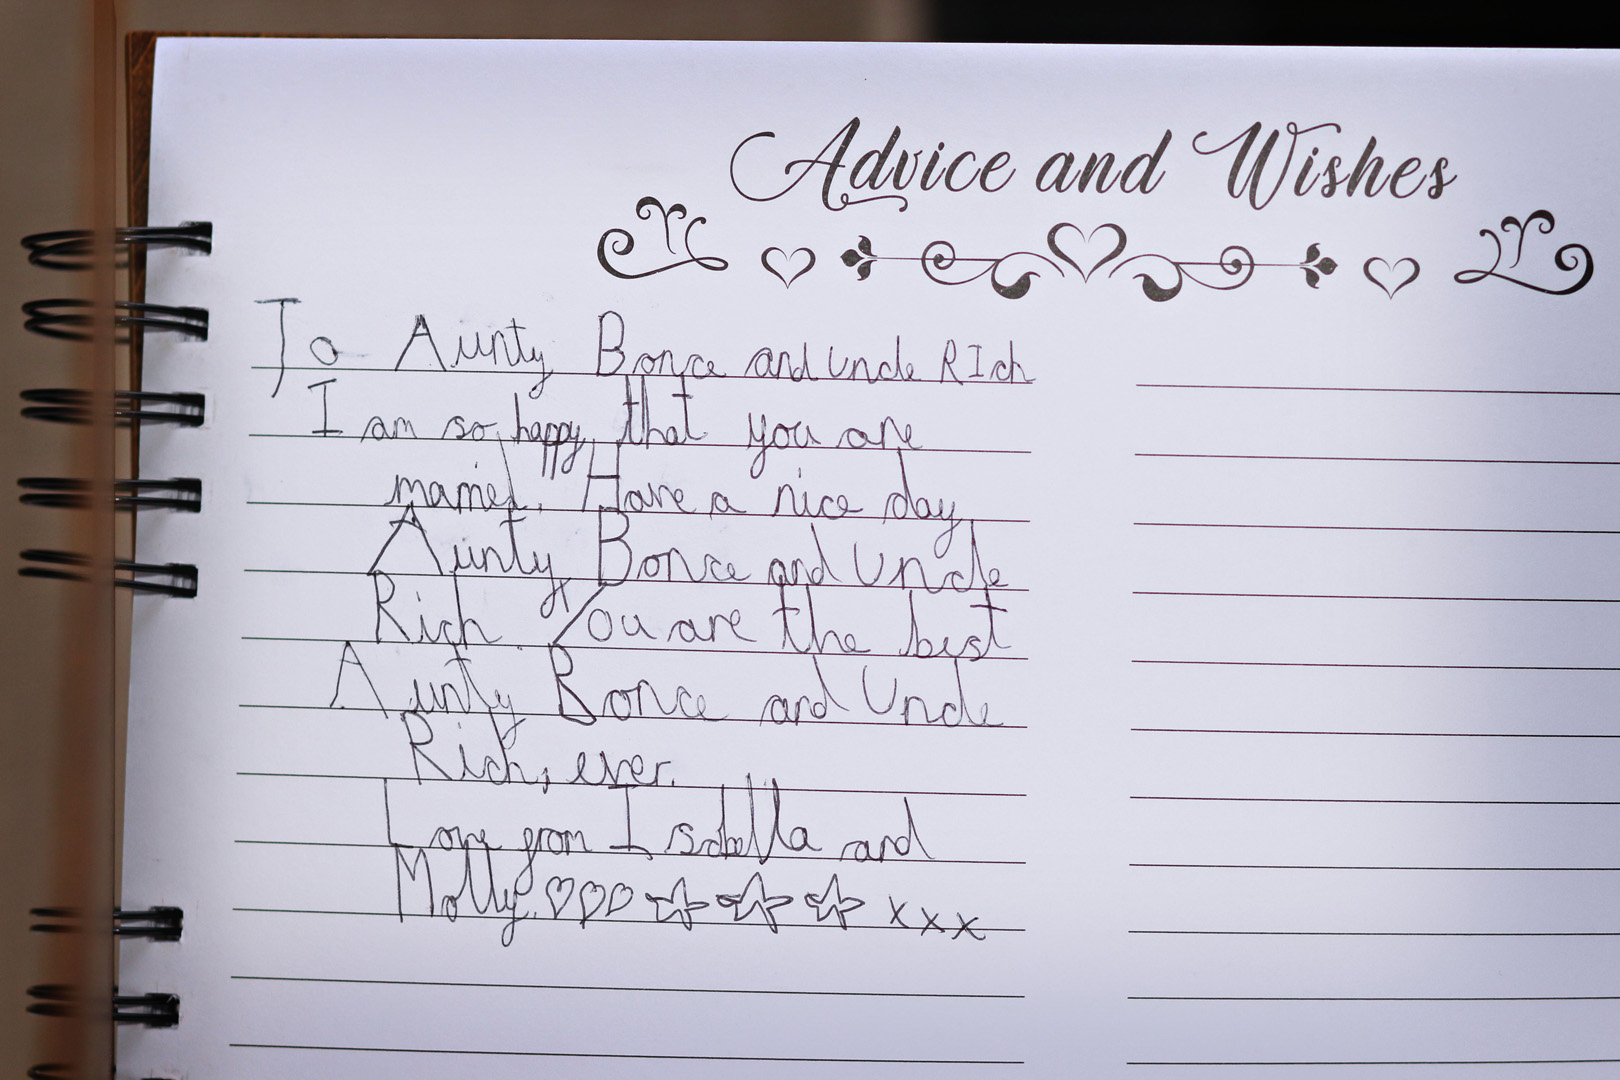 Advice and Wishes
To Aunty Bonce and Uncle RIch
I am so happy that you are
married. Have a nice day
Aunty Bonce and Uncle
Rich You are the best
Aunty Bonce and Uncle
Rich, ever.
Love from Isabella and
Molly. ♡♡♡☆☆☆ xxx